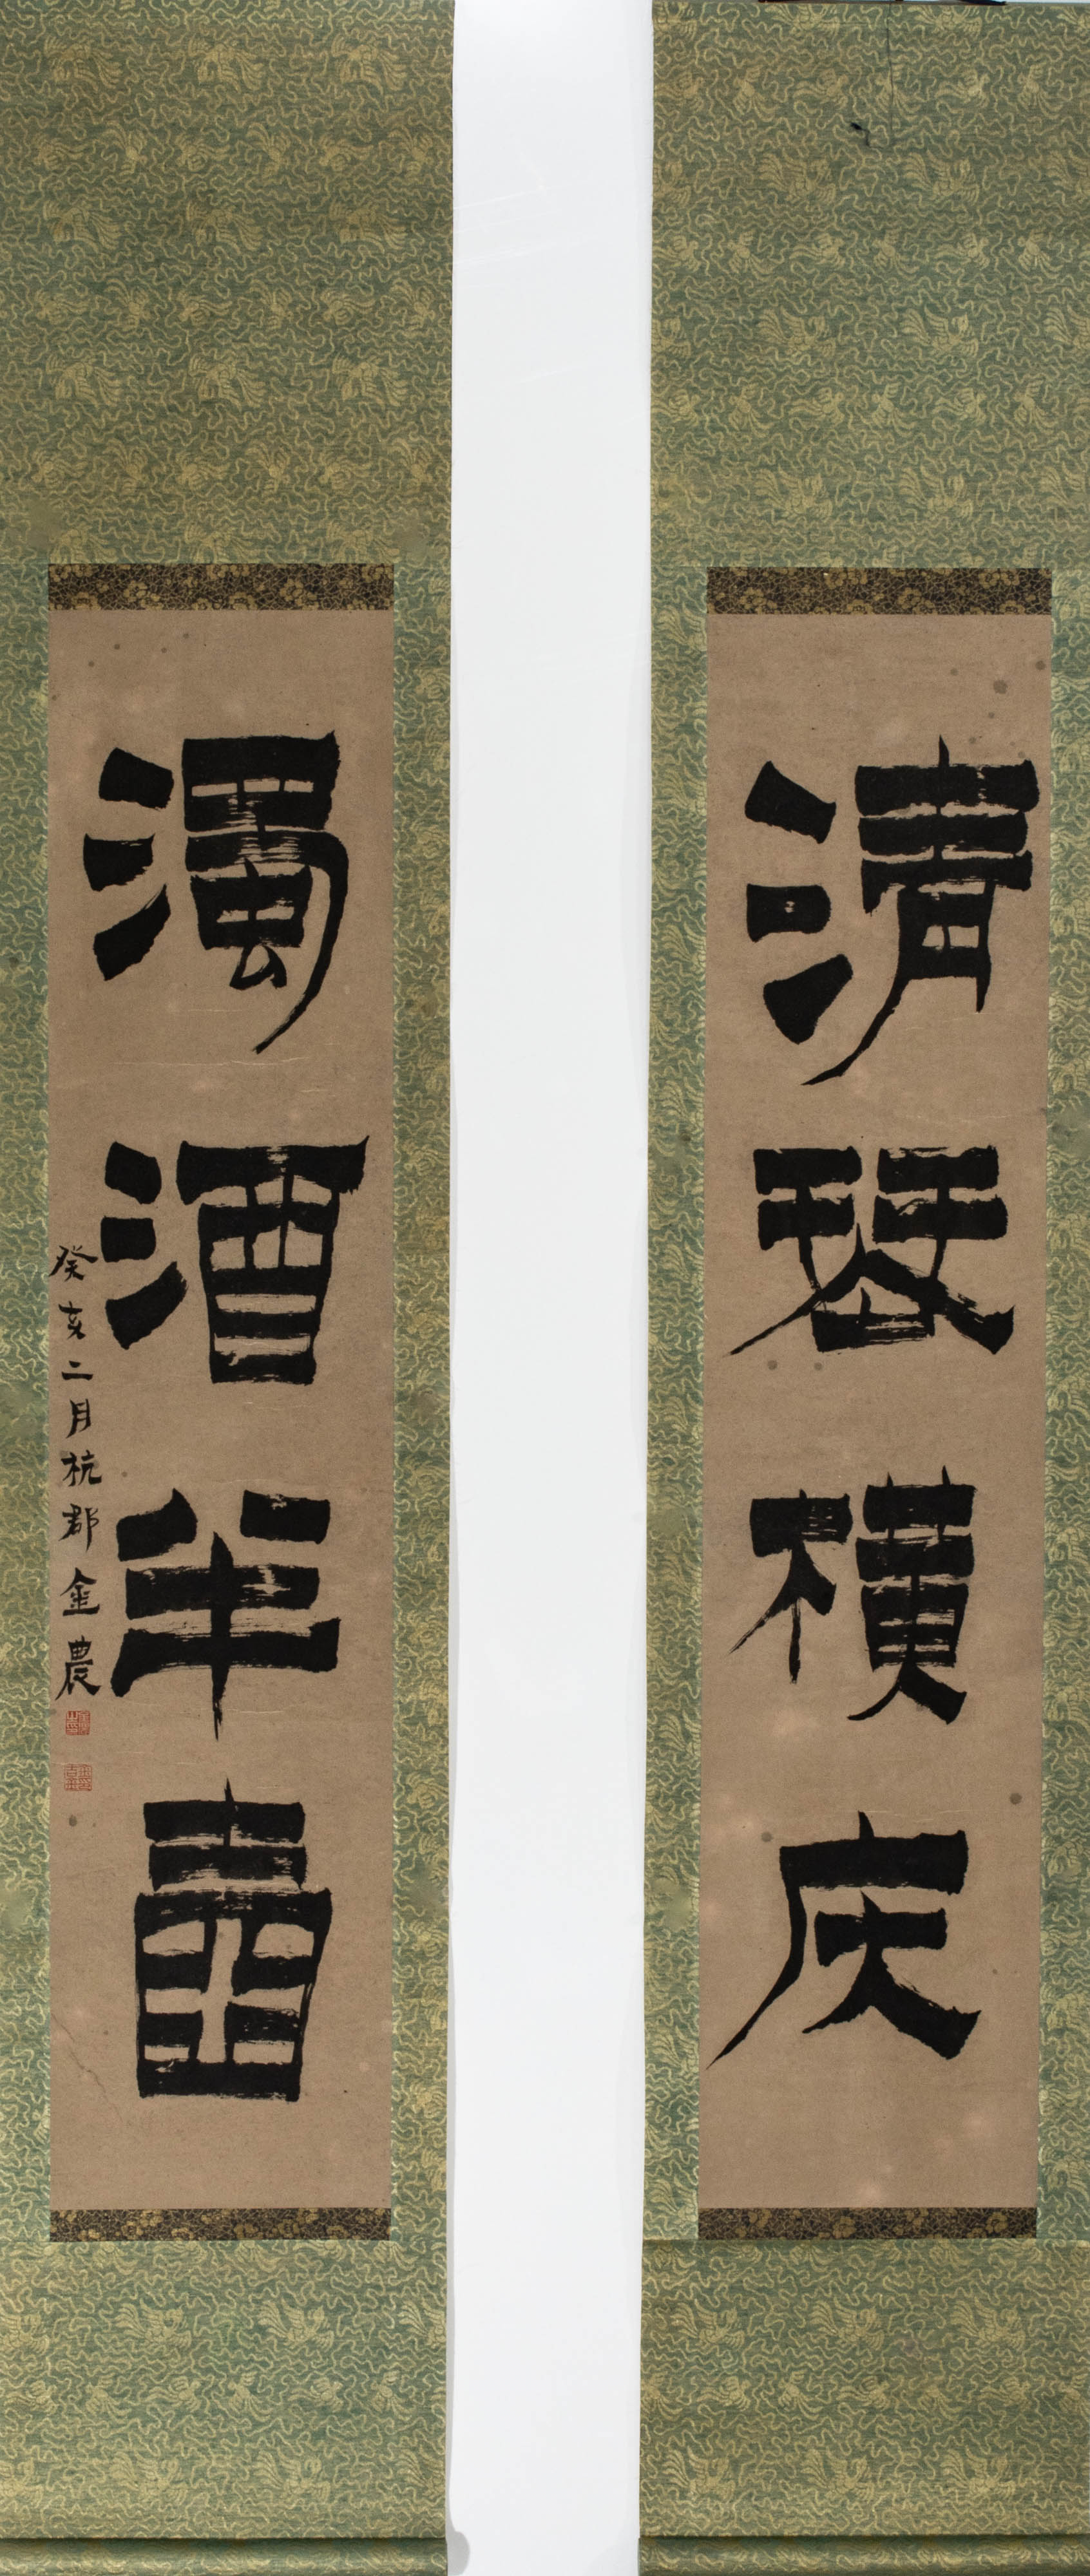 清琴橫床
濁酒半壺
癸亥二月杭郡金農